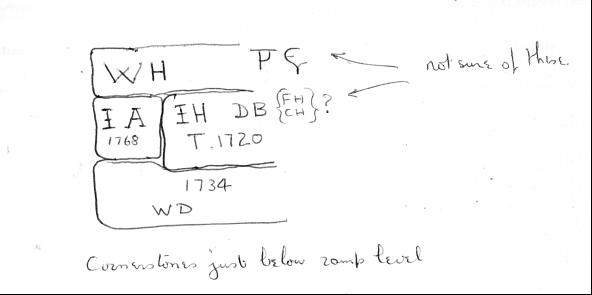 WH PS
not sure of these.
IA IH DB {FH} ?
{CH}
1768 T.1720
1734
WD
Cornerstones just below ramp level